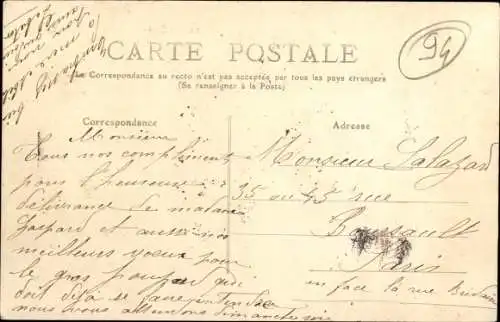 94
CARTE POSTALE
La Correspondance au recto n'est pas acceptée par tous les pays étrangers
(Se renseigner à la Poste)
Correspondance
Adresse
Monsieur
Tous nos compliments
pour l'heureuse
délivrance de madame
Gaspard et aussi nos
meilleurs voeux pour
le gros poupard qui
doit déjà se faire entendre
nous vous attendons dimanche soir
Monsieur Salazard
35 ou 43 rue
Boussault
Paris
en face la rue